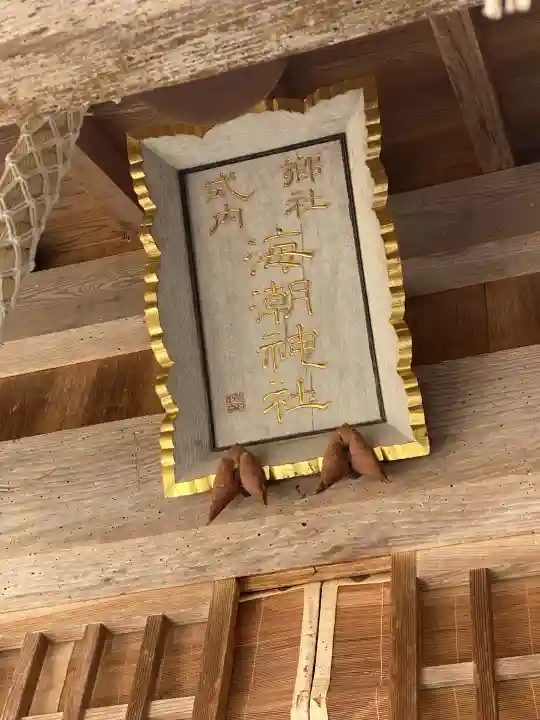 郷社
式内
海潮神社